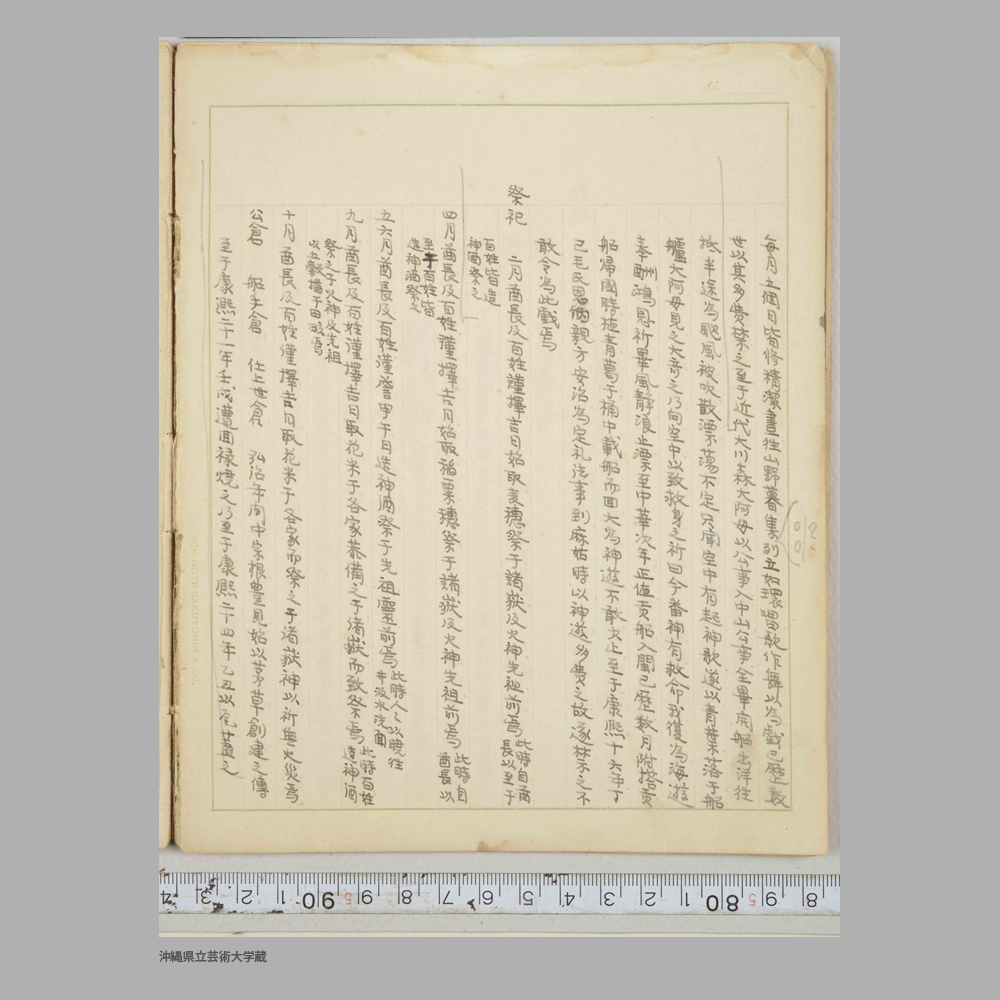 毎月五個日皆修精潔晝往山野暮集列立如環唱歌作舞以為戯已歴数
世以其多費禁之至于近代大川森大阿母以公事入中山公事全畢南船出洋往
至半途為颶風被吹散漂蕩不定只聞空中有起神歌遂以青葉落于船
艫大阿母見之大奇之乃向空中以致救身之祈曰今番神有救命我復為海遊
奉酬鴻恩祈畢風静浪止漂至中華次年正値貢船入閩已歴数月附搭貢
船帰國時植青葛于桶中載船而回大為神遊不敢少止至于康熙十六年丁
巳毛氏恩納親方安治為定礼法事到麻姑時以神遊多費之故遂禁之不
敢令為此戯焉
祭祀　二月酋長及百姓謹擇吉日始取麦穗祭于諸嶽及火神先祖前焉此時自酋長以至于
百姓皆造神酒祭之
四月酋長及百姓謹擇吉月始取稲粟穗祭于諸嶽及火神先祖前焉此時自酋長以
至于百姓皆造神酒祭之
五六月酋長及百姓謹當甲午日造神酒祭于先祖靈前焉此時人々以暁往井汲水洗面
九月酋長及百姓謹擇吉日取花米于各家恭備之于諸嶽而致祭焉此時百姓造神酒
祭之于火神及先祖以五穀播于田畝焉
十月酋長及百姓謹擇吉日取花米于各家而祭之于諸嶽神以祈無火災焉
公倉　船手倉　仕上世倉　弘治年間中宗根豊見始以茅草創建之傳
至于康熙二十一年壬戌遭回禄焼之乃至于康熙二十四年乙丑以瓦蓋之
沖縄県立芸術大学蔵